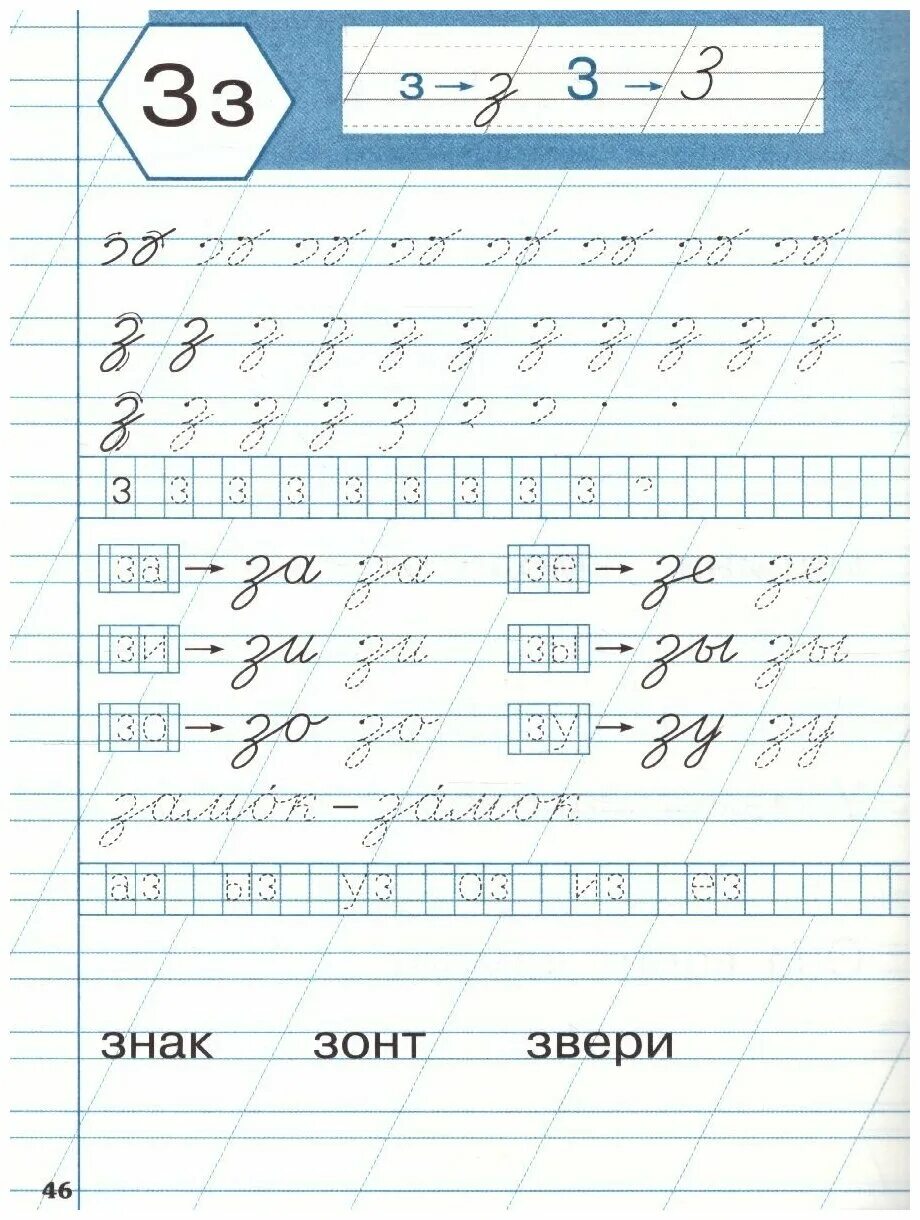 Зз з → з З → З
з з з з з з з з з з з
з з з з з
з з з з з з з з з
за → за за зе → зе зе
зи → зи зи зы → зы зы
зо → зо зо зу → зу зу
замо́к – за́мок
аз ыз уз оз из ез
знак зонт звери
46